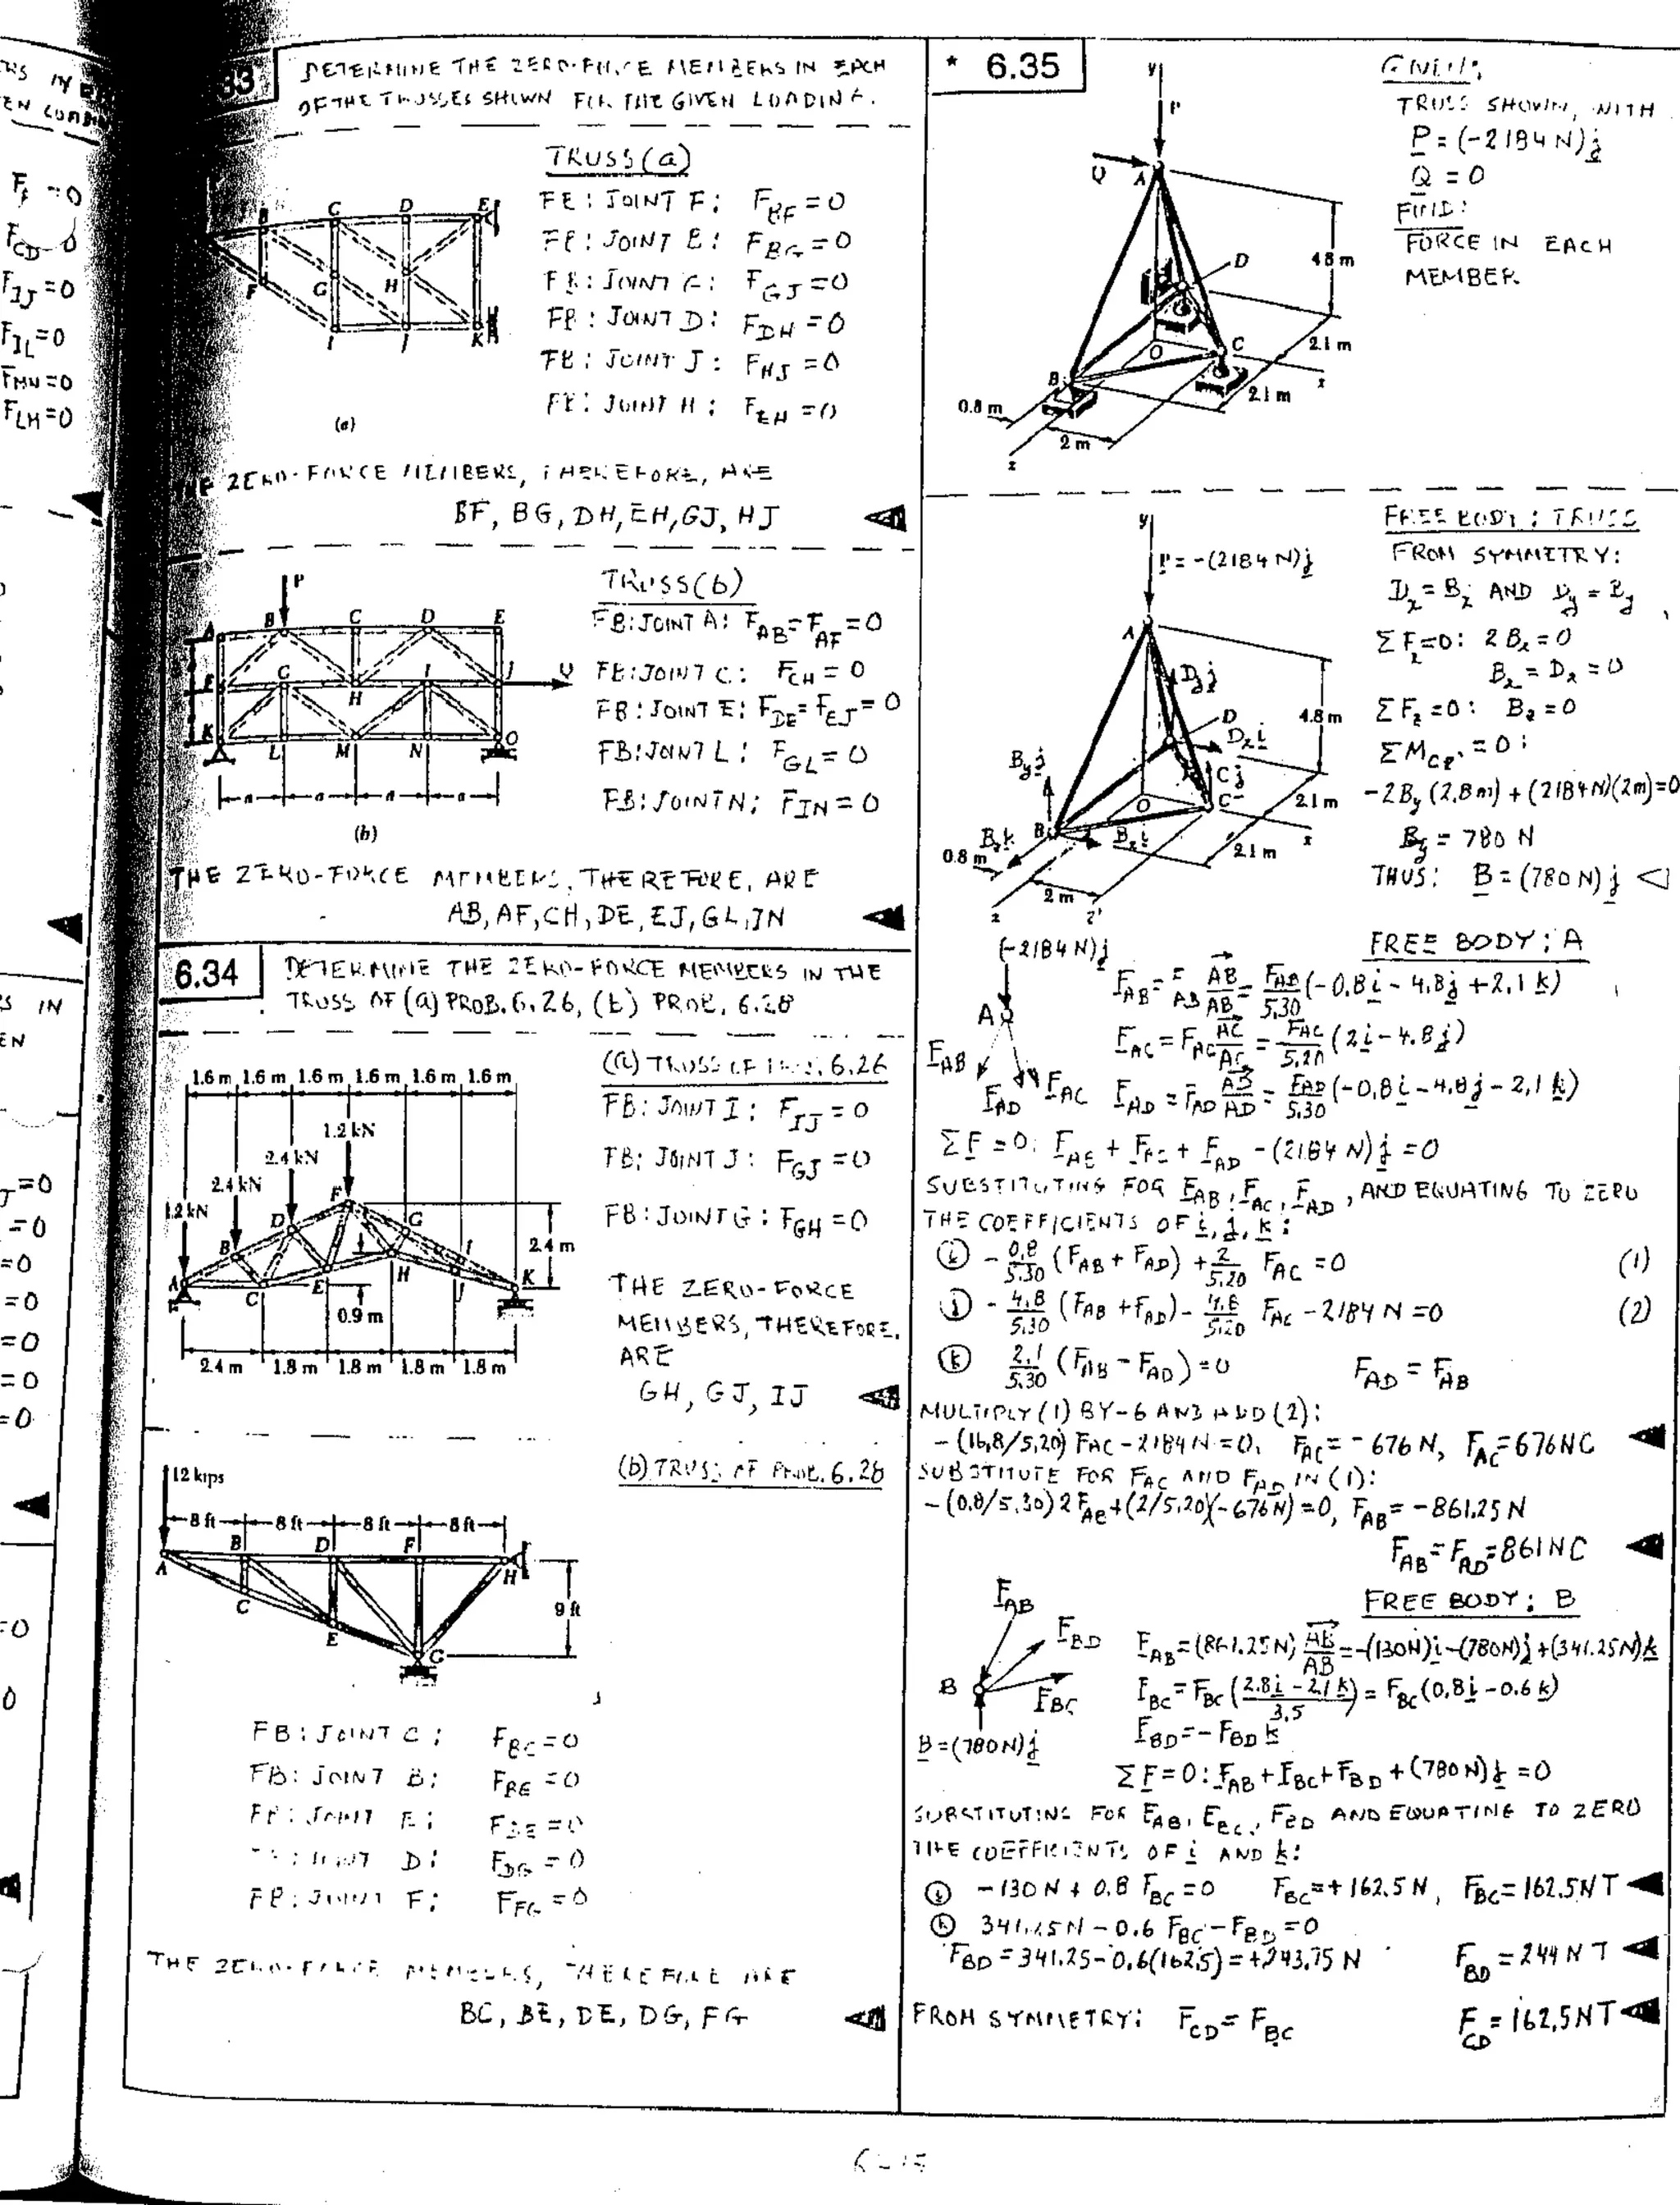 33
DETERMINE THE ZERO-FORCE MEMBERS IN EACH
OF THE TRUSSES SHOWN FOR THE GIVEN LOADING.
TRUSS (a)
FB: JOINT F: F_BF = 0
FB: JOINT B: F_BG = 0
FB: JOINT G: F_GJ = 0
FB: JOINT D: F_DH = 0
FB: JOINT J: F_HJ = 0
FB: JOINT H: F_EH = 0
(a)
ZERO-FORCE MEMBERS, THEREFORE, ARE
BF, BG, DH, EH, GJ, HJ
TRUSS (b)
FB: JOINT A: F_AB = F_AF = 0
FB: JOINT C: F_CH = 0
FB: JOINT E: F_DE = F_EJ = 0
FB: JOINT L: F_GL = 0
FB: JOINT N: F_IN = 0
(b)
THE ZERO-FORCE MEMBERS, THEREFORE, ARE
AB, AF, CH, DE, EJ, GL, IN
6.34
DETERMINE THE ZERO-FORCE MEMBERS IN THE
TRUSS OF (a) PROB. 6.26, (b) PROB. 6.28
(a) TRUSS OF PROB. 6.26
1.6 m 1.6 m 1.6 m 1.6 m 1.6 m 1.6 m
1.2 kN
2.4 kN
2.4 kN
1.2 kN
2.4 m
0.9 m
2.4 m 1.8 m 1.8 m 1.8 m 1.8 m
FB: JOINT I: F_IJ = 0
FB: JOINT J: F_GJ = 0
FB: JOINT G: F_GH = 0
THE ZERO-FORCE
MEMBERS, THEREFORE,
ARE
GH, GJ, IJ
(b) TRUSS OF PROB. 6.28
12 kips
8 ft 8 ft 8 ft 8 ft
9 ft
FB: JOINT C: F_BC = 0
FB: JOINT B: F_BE = 0
FB: JOINT E: F_DE = 0
FB: JOINT D: F_DG = 0
FB: JOINT F: F_FG = 0
THE ZERO-FORCE MEMBERS, THEREFORE ARE
BC, BE, DE, DG, FG
* 6.35
GIVEN:
TRUSS SHOWN, WITH
P = (-2184 N) j
Q = 0
FIND:
FORCE IN EACH
MEMBER.
4.8 m
2.1 m
2.1 m
0.8 m
2 m
FREE BODY: TRUSS
FROM SYMMETRY:
D_x = B_x AND D_y = B_y
ΣF_x = 0: 2 B_x = 0
B_x = D_x = 0
ΣF_z = 0: B_z = 0
ΣM_cz' = 0:
-2B_y (2.8 m) + (2184 N)(2 m) = 0
B_y = 780 N
THUS: B = (780 N) j
P = -(2184 N) j
4.8 m
2.1 m
2.1 m
0.8 m
2 m
FREE BODY: A
(-2184 N) j
F_AB = F_AB AB/AB = F_AB/5.30 (-0.8 i - 4.8 j + 2.1 k)
F_AC = F_AC AC/AC = F_AC/5.20 (2 i - 4.8 j)
F_AD = F_AD AD/AD = F_AD/5.30 (-0.8 i - 4.8 j - 2.1 k)
ΣF = 0: F_AB + F_AC + F_AD - (2184 N) j = 0
SUBSTITUTING FOR F_AB, F_AC, F_AD, AND EQUATING TO ZERO
THE COEFFICIENTS OF i, j, k:
(i) - 0.8/5.30 (F_AB + F_AD) + 2/5.20 F_AC = 0 (1)
(j) - 4.8/5.30 (F_AB + F_AD) - 4.8/5.20 F_AC - 2184 N = 0 (2)
(k) 2.1/5.30 (F_AB - F_AD) = 0 F_AD = F_AB
MULTIPLY (1) BY -6 AND ADD (2):
- (16.8/5.20) F_AC - 2184 N = 0, F_AC = -676 N, F_AC = 676 N C
SUBSTITUTE FOR F_AC AND F_AD IN (1):
- (0.8/5.30) 2 F_AB + (2/5.20)(-676 N) = 0, F_AB = -861.25 N
F_AB = F_AD = 861 N C
FREE BODY: B
F_AB = (861.25 N) AB/AB = -(130 N) i - (780 N) j + (341.25 N) k
F_BC = F_BC (2.8 i - 2.1 k / 3.5) = F_BC (0.8 i - 0.6 k)
F_BD = - F_BD k
B = (780 N) j
ΣF = 0: F_AB + F_BC + F_BD + (780 N) j = 0
SUBSTITUTING FOR F_AB, F_BC, F_BD AND EQUATING TO ZERO
THE COEFFICIENTS OF i AND k:
(i) -130 N + 0.8 F_BC = 0 F_BC = +162.5 N, F_BC = 162.5 N T
(k) 341.25 N - 0.6 F_BC - F_BD = 0
F_BD = 341.25 - 0.6(162.5) = +243.75 N F_BD = 244 N T
FROM SYMMETRY: F_CD = F_BC F_CD = 162.5 N T